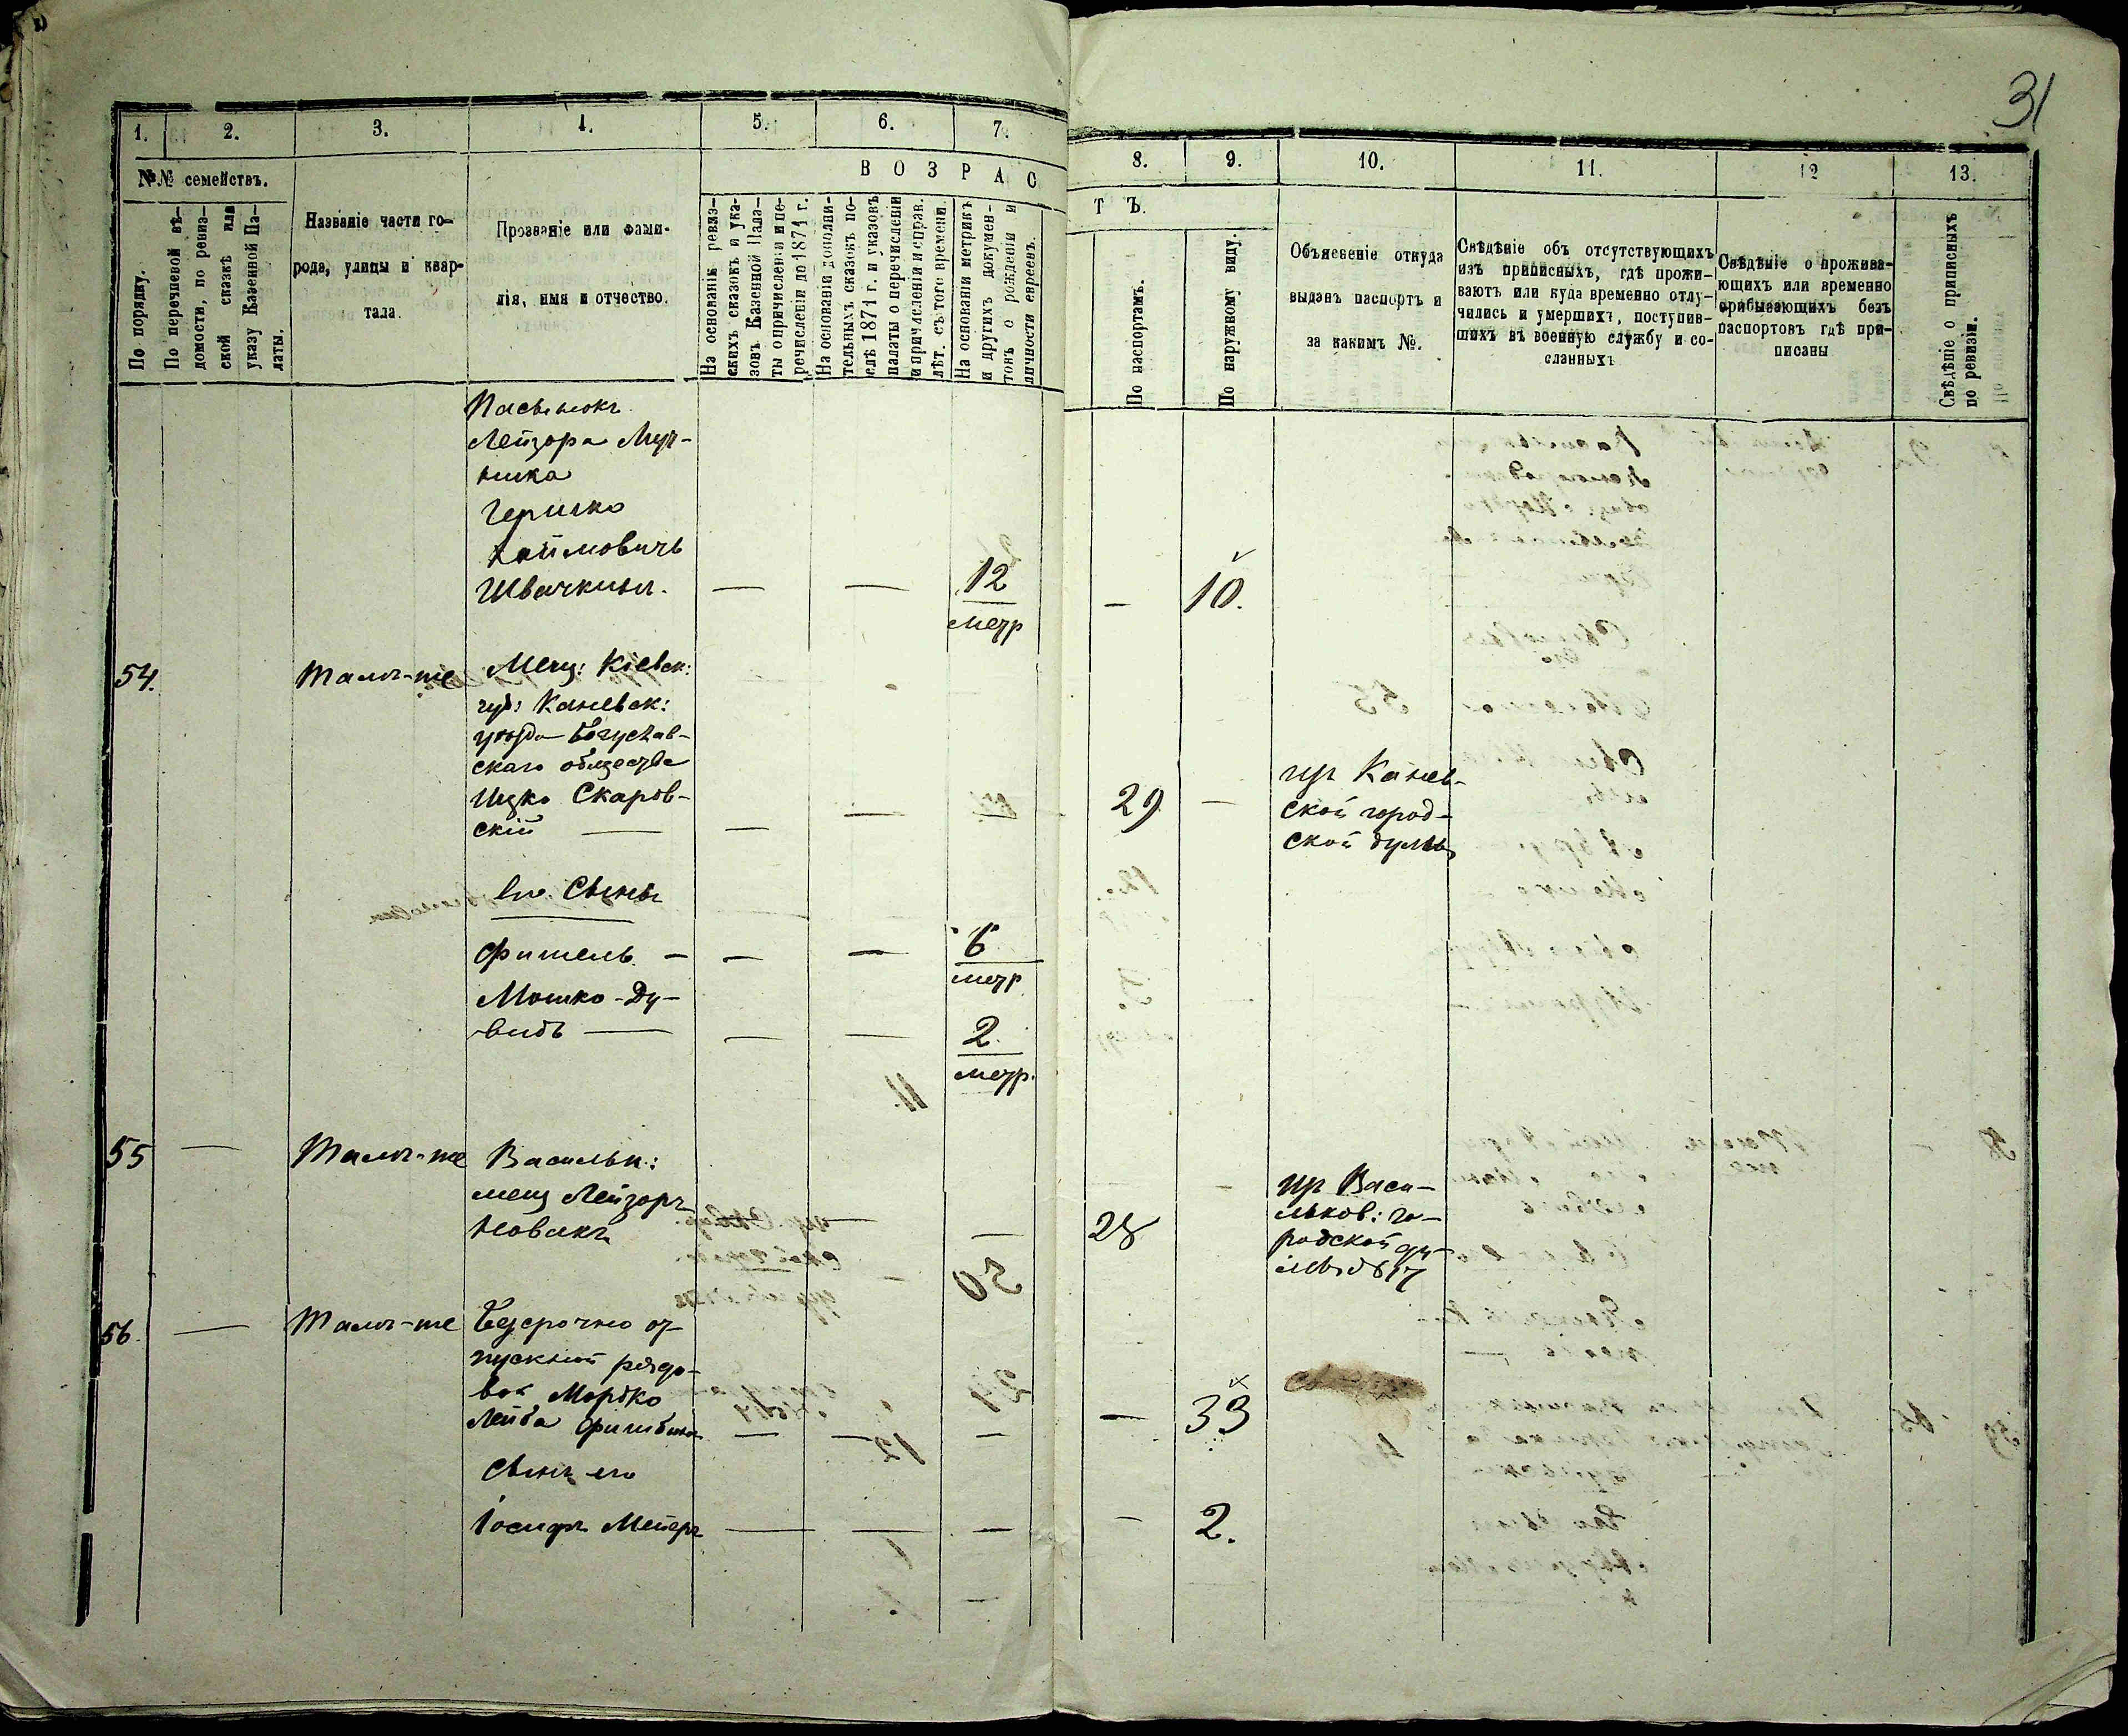 31
1. 2. 3. 4. 5. 6. 7.
8. 9. 10. 11. 12 13.
№№ семействъ.
По порядку.
По перечневой вѣ-
домости, по ревиз-
ской сказкѣ или
указу Казенной Па-
латы.
Названіе части го-
рода, улицы и квар-
тала.
Прозваніе или фами-
лія, имя и отчество.
ВОЗРАС
ТЪ.
На основаніи ревиз-
скихъ сказокъ и ука-
зовъ Казенной Пала-
ты о причисленіи и пе-
речисленіи до 1874 г.
На основаніи дополни-
тельныхъ сказокъ по-
слѣ 1874 г. и указовъ
палаты о перечисленіи
и причисленіи и справ.
лѣт. съ того времени.
На основаніи метрикъ
и другихъ докумен-
товъ о рожденіи и
личности евреевъ.
По паспортамъ.
По наружному виду.
Объясненіе откуда
выданъ паспортъ и
за какимъ №.
Свѣдѣніе объ отсутствующихъ
изъ приписныхъ, гдѣ прожи-
ваютъ или куда временно отлу-
чились и умершихъ, поступив-
шихъ въ военную службу и со-
сланныхъ
Свѣдѣніе о прожива-
ющихъ или временно
прибывающихъ безъ
паспортовъ гдѣ при-
писаны
Свѣдѣніе о приписныхъ
по ревизіи.
Пасынокъ
Лейзора Муч-
ника
Гершко
Хаймовичъ
Швачкинъ. — — 12 — 10.
метр
54. Тамъ-же Мещ: Кіевск:
губ: Каневск:
уѣзда Богуслав-
скаго общества
Ицко Скаров-
скій — — — 29 —
изъ Канев-
ской город-
ской думы
Его Сыны
Фишель — — — 6
метр
Мошко-Ду-
видъ — — — 2.
метр.
55 — Тамъ-же Васильк:
мещ Лейзоръ
Новакъ — 28
изъ Васи-
льков: го-
родской ду-
мы
56. — Тамъ-же Безсрочно от-
пускной рядо-
вой Мордко
Лейба — — — — 33
Сынъ его
Іосифъ Мейеръ — — — — 2.